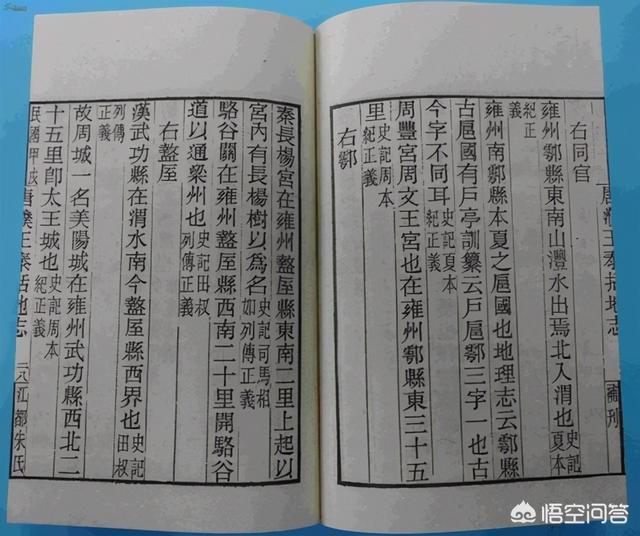 唐濮王泰括地志 補刊
右同官
雍州鄠縣東南山灃水出焉北入渭也史記夏本
紀正義
雍州南鄠縣本夏之扈國也地理志云鄠縣
古扈國有戶亭訓纂云戶扈鄠三字一也古
今字不同耳史記夏本紀正義
周豐宮周文王宮也在雍州鄠縣東三十五
里史記周本紀正義
右鄠
秦長楊宮在雍州盩厔縣東南二里上起以
宮內有長楊樹以爲名史記司馬相如列傳正義
駱谷關在雍州盩厔縣西南二十里開駱谷
道以通梁州也史記田叔列傳正義
右盩厔
漢武功縣在渭水南今盩厔縣西界也史記田叔
列傳正義
故周城一名美陽城在雍州武功縣西北二
十五里卽太王城也史記周本紀正義
民國甲戌 唐濮王泰括地志 三八 江都朱氏
悟空问答